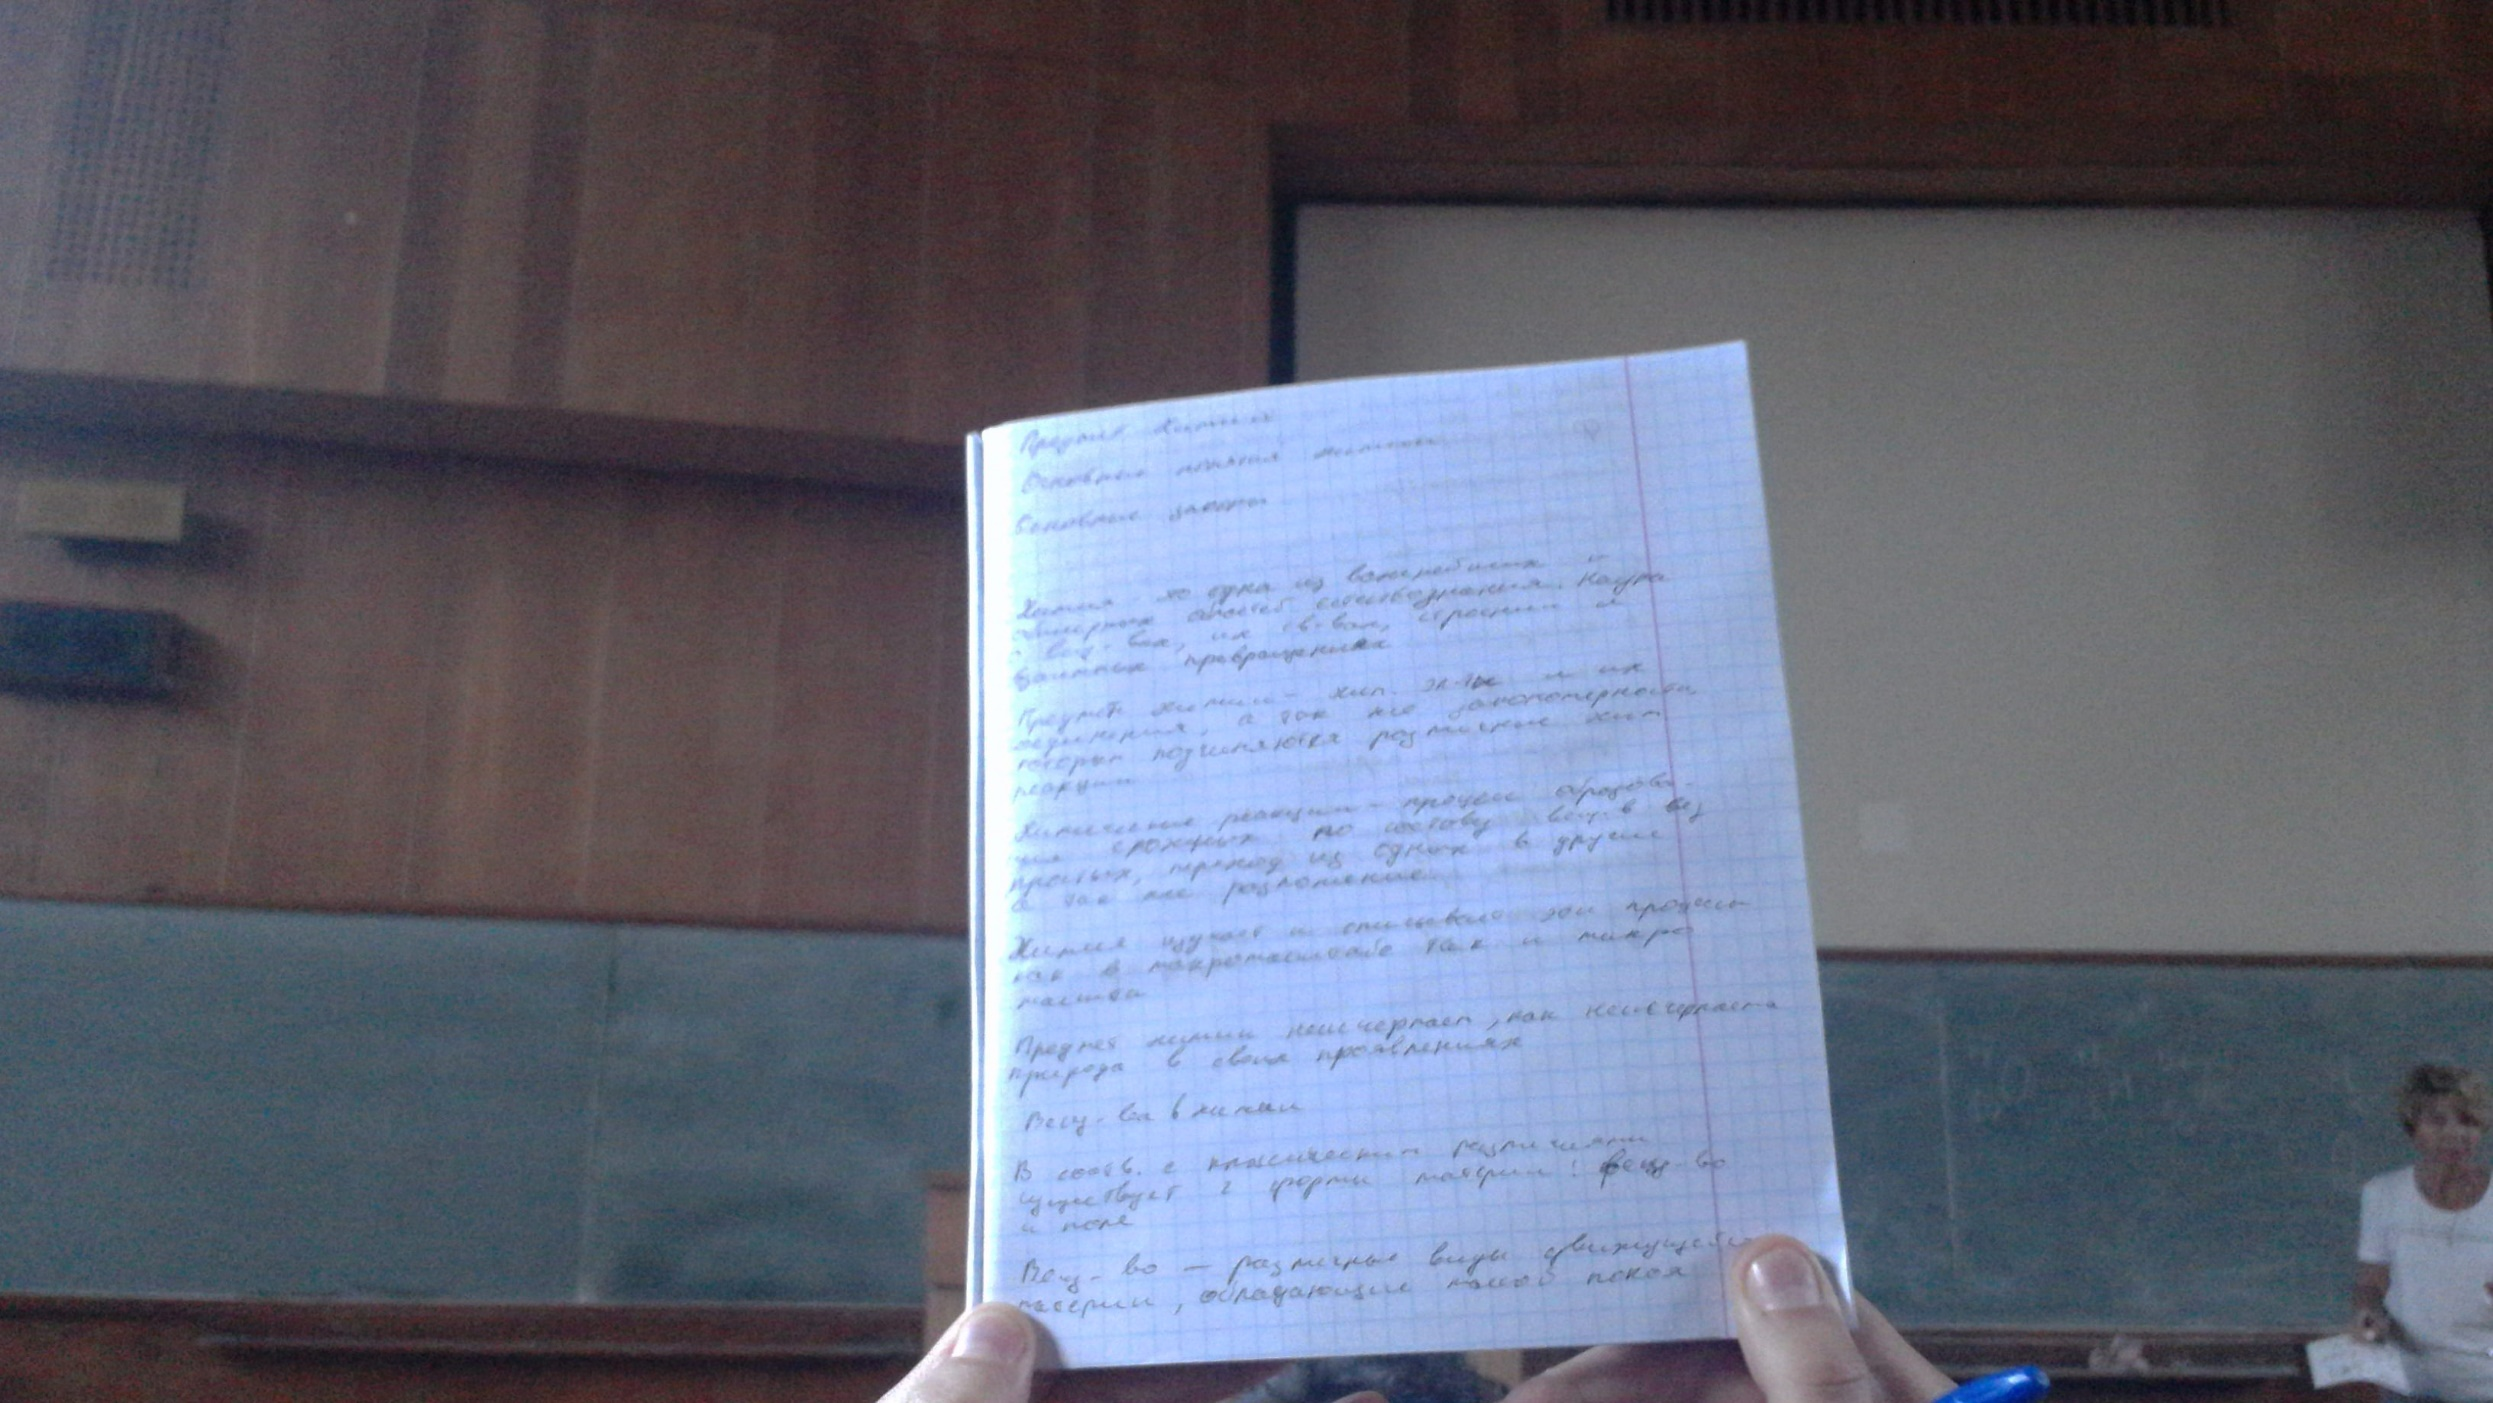 Предмет Химии
Основные понятия химии
Основные законы
Химия - это одна из важнейших и
обширных областей естествознания. Наука
о вещ-вах, их св-вах, строении и
взаимных превращениях
Предмет химии - хим. эл-ты и их
соединения, а так же закономерности,
которым подчиняются различные хим
реакции
Химические реакции - процесс образова-
ния сложных по составу вещ-в из
простых, переход из одних в другие
а так же разложение.
Химия изучает и описывает эти процессы
как в макромасштабе так и микро
масштабе
Предмет химии неисчерпаем, как неисчерпаема
природа в своих проявлениях
Вещ-ва в химии
В соотв. с классическим различиями
существует 2 формы материи: вещ-во
и поле
Вещ-во — различные виды движущейся
материи, обладающие массой покоя